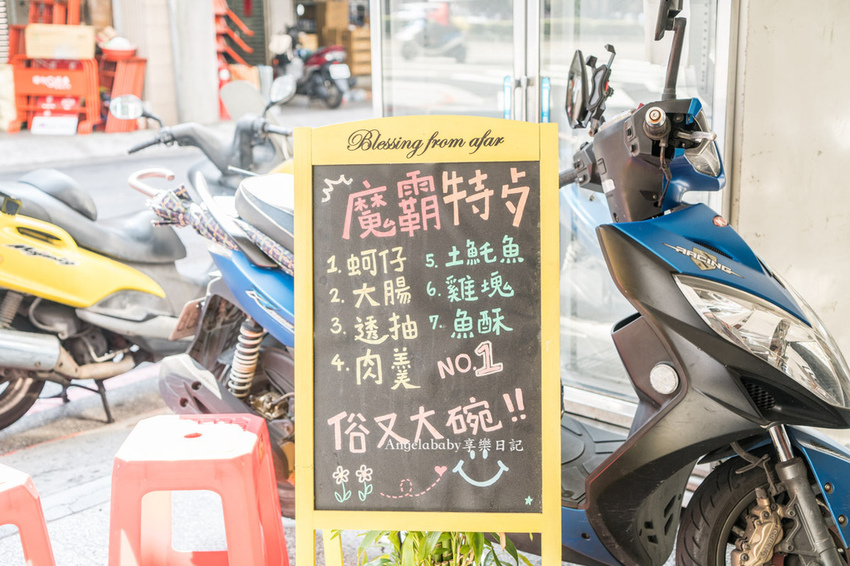 Blessing from afar
魔霸特夕
1. 蚵仔
2. 大腸
3. 透抽
4. 肉羹
5. 土魠魚
6. 雞塊
7. 魚酥
NO.1
俗又大碗!!
Angelababy享樂日記
RACING